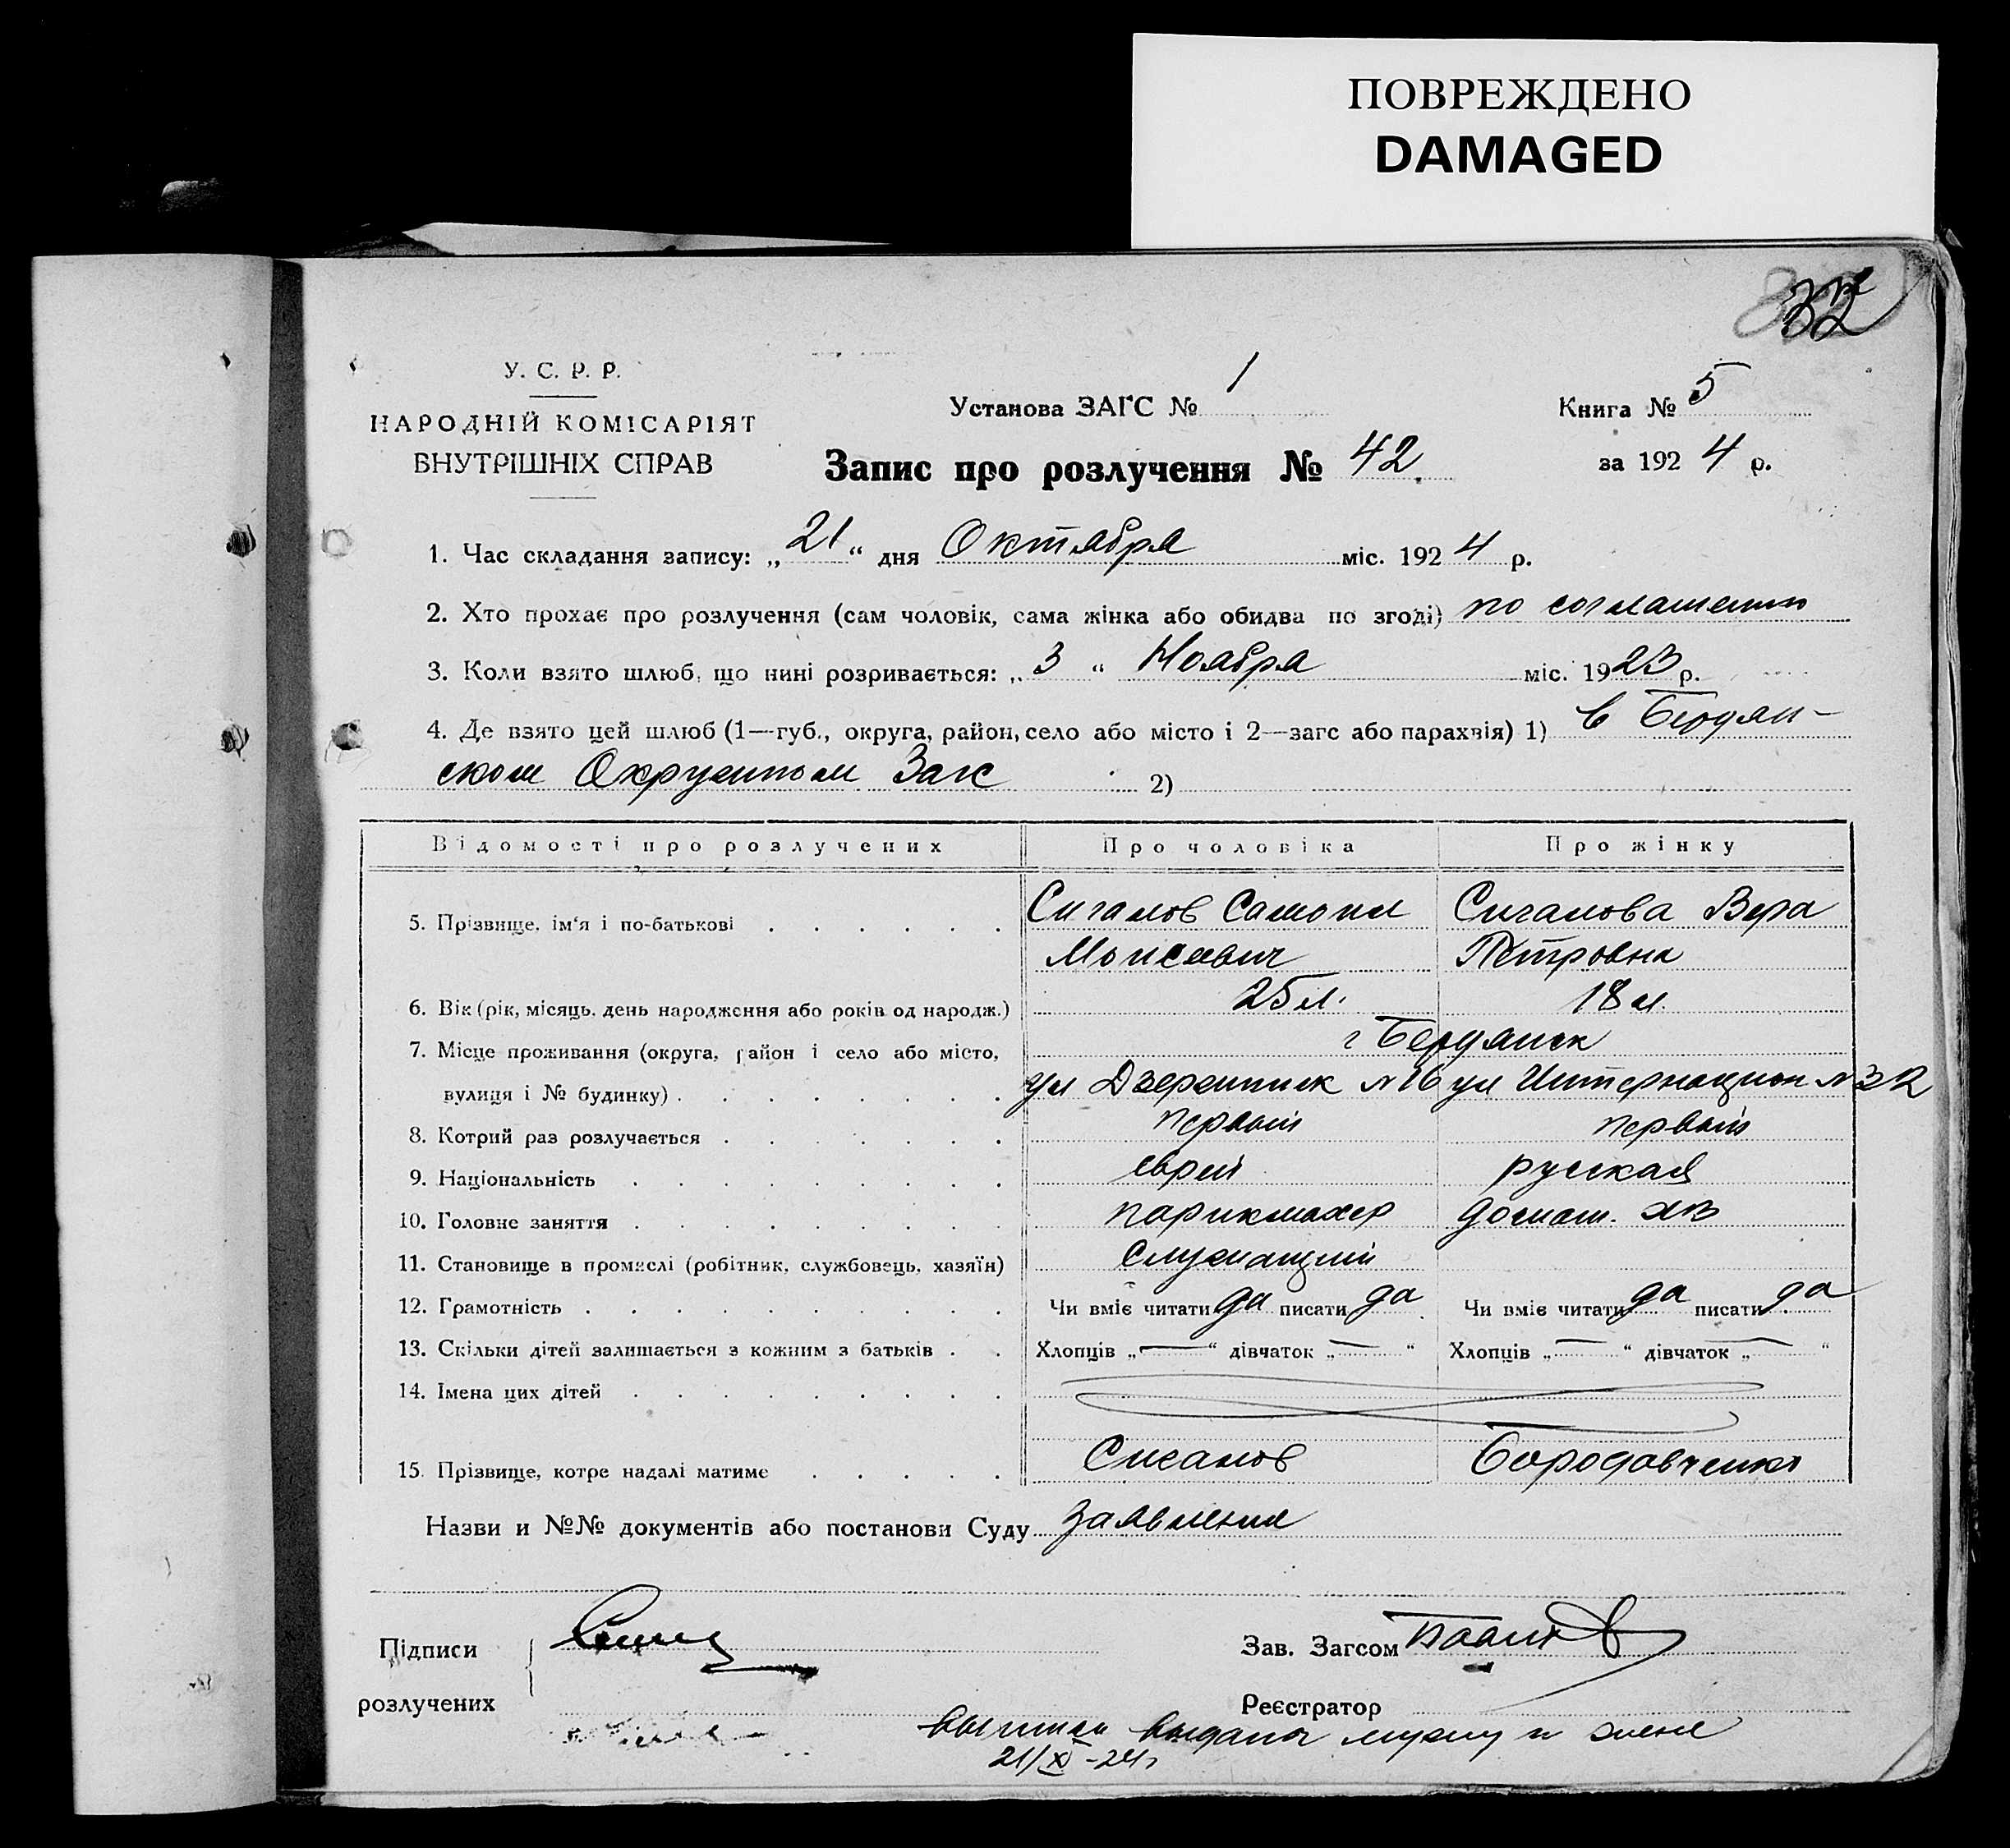 ПОВРЕЖДЕНО
DAMAGED
32
У. С. Р. Р.
НАРОДНІЙ КОМІСАРІЯТ
ВНУТРІШНІХ СПРАВ
Установа ЗАГС № 1
Книга № 5
Запис про розлучення № 42
за 1924 р.
1. Час складання запису: „21“ дня Октября міс. 1924 р.
2. Хто прохає про розлучення (сам чоловік, сама жінка або обидва по згоді) по соглашению
3. Коли взято шлюб, що нині розривається: „3“ Ноября міс. 1923 р.
4. Де взято цей шлюб (1—губ., округа, район, село або місто і 2—загс або парахвія) 1) в Бердян-
ском Окружном Загс 2)
Відомості про розлучених Про чоловіка Про жінку
5. Прізвище, ім'я і по-батькові Сигалов Самоил Сигалова Вера
Моисеевич Петровна
6. Вік (рік, місяць, день народження або років од народж.) 25 л. 18 л.
7. Місце проживання (округа, район і село або місто, г Бердянск
вулиця і № будинку) ул Дзержинск № 16 ул Интернацион № 32
8. Котрий раз розлучається первый первый
9. Національність еврей руская
10. Головне заняття парикмахер домаш. хоз
11. Становище в промислі (робітник, службовець, хазяїн) служащий
12. Грамотність Чи вміє читати да писати да Чи вміє читати да писати да
13. Скільки дітей залишається з кожним з батьків Хлопців „—“ дівчаток „—“ Хлопців „—“ дівчаток „—“
14. Імена цих дітей
15. Прізвище, котре надалі матиме Сигалов Бородавченко
Назви и №№ документів або постанови Суду заявления
Підписи
розлучених
Зав. Загсом
Реєстратор
выписи выданы мужу и жене
21/X -24г